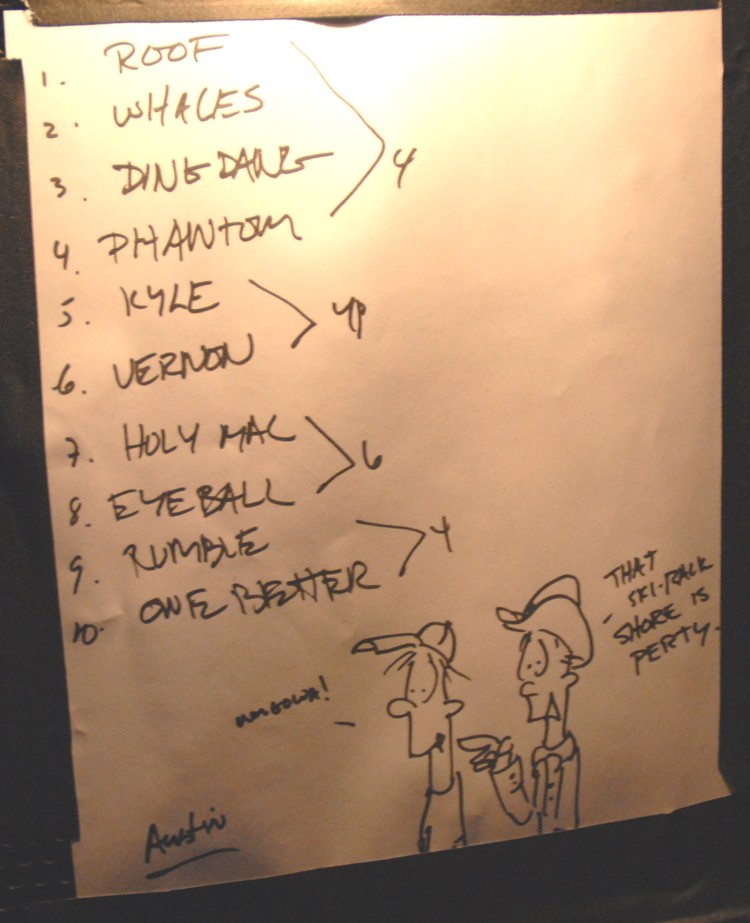 1. ROOF
2. WHALES
3. DING DANG
4. PHANTOM
4
5. KYLE
6. VERNON
4P
7. HOLY MAC
8. EYEBALL
6
9. RUMBLE
10. ONE BETTER
4
THAT
SKI-RACK
SHORE IS
PERTY.
Austin